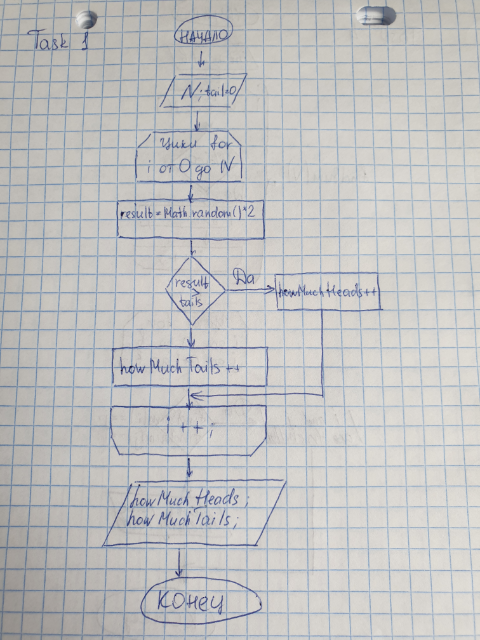 Task 1
НАЧАЛО
N; tail=0
Цикл for
i от 0 до N
result = Math.random()*2
result
>
tails
Да
howMuchHeads++
howMuchTails++
i++;
howMuchHeads;
howMuchTails;
КОНЕЦ